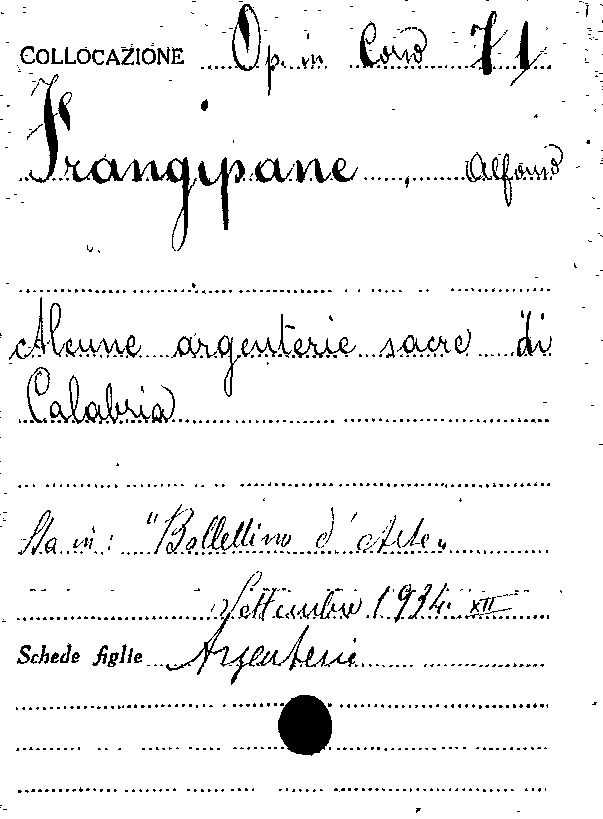 COLLOCAZIONE Op. in Corso 71
Frangipane, Alfonso
Alcune argenterie sacre di
Calabria
Sta in: "Bollettino d'Arte"
Settembre 1934. XII
Schede figlie Argenterie